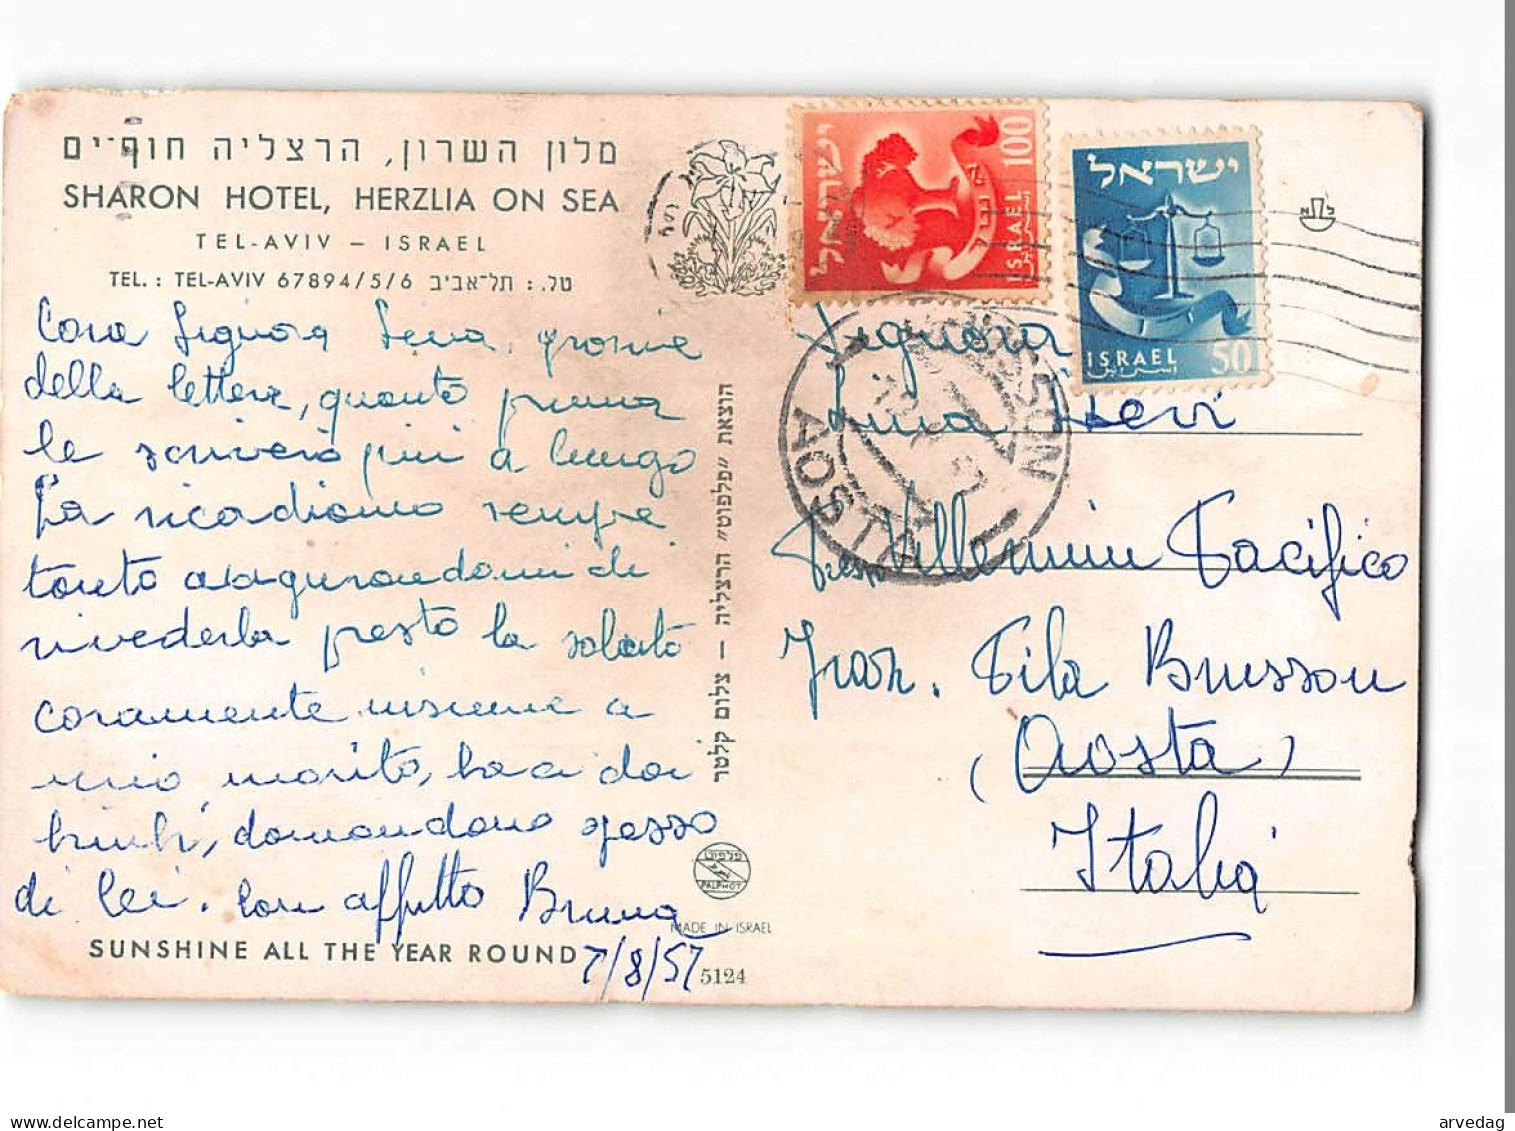 מלון השרון, הרצליה חוף־ים
SHARON HOTEL, HERZLIA ON SEA
TEL-AVIV – ISRAEL
TEL.: TEL-AVIV 67894/5/6 טל.: תל־אביב
Cara Signora Lena, grazie
della lettera, quanto prima
le scriverò più a lungo
La ricordiamo sempre
tanto augurandomi di
rivederla presto la saluto
caramente insieme a
mio marito, baci dai
bimbi, domandano spesso
di lei. Con affetto Bruna
7/8/57
SUNSHINE ALL THE YEAR ROUND
הוצאת "פלפוט" הרצליה – צלום קלטר
פלפוט
PALPHOT
MADE IN ISRAEL
5124
ישראל
100
ISRAEL
ישראל
ISRAEL
50
إسرائيل
BRUSSON
AOSTA
Signora
Levi
Presso Villemin Pacifico
Fraz. Fila Brusson
(Aosta)
Italia
arvedag